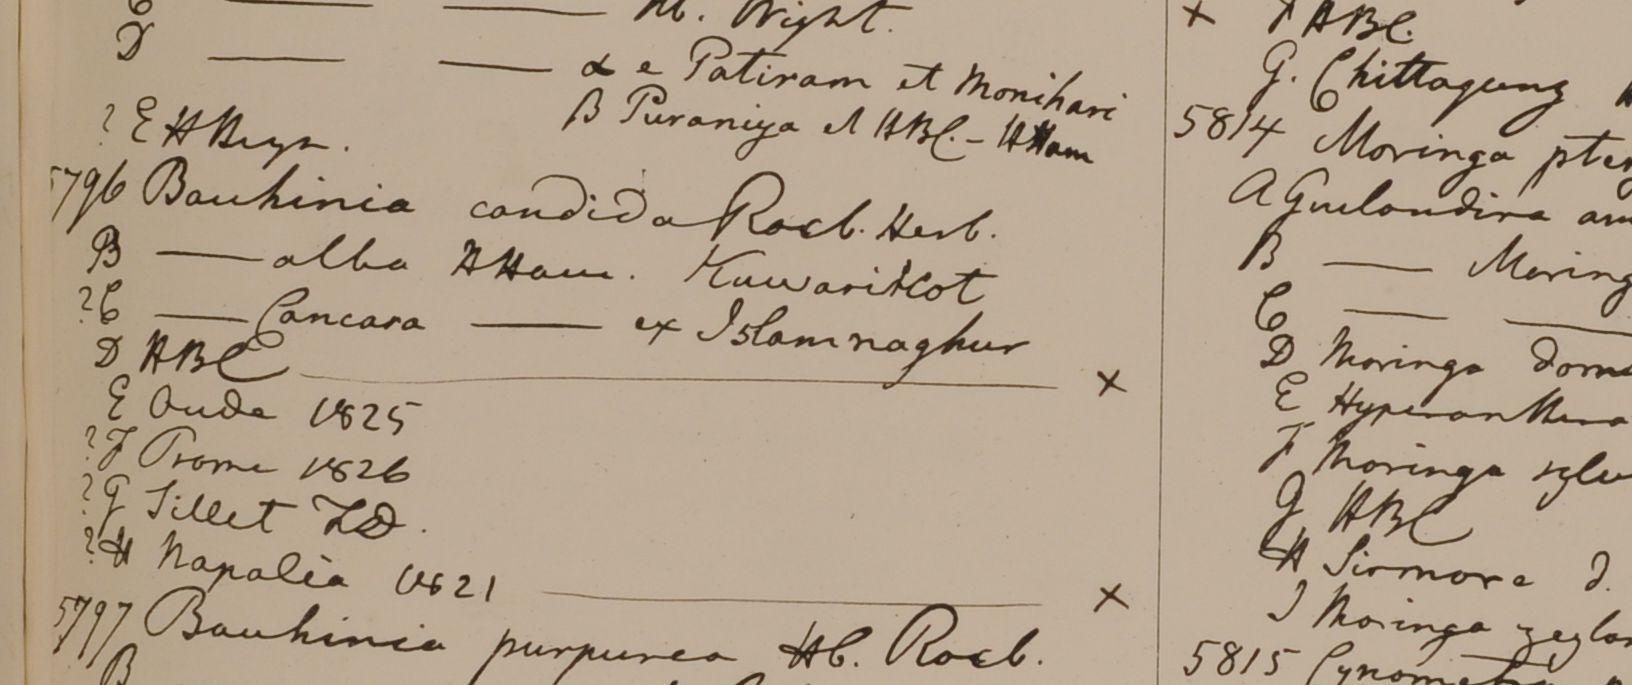 C —— —— Hb. Wight.
D —— —— α e Patiram et Monihari
β Puraniya et HBC. - HHam
? E H Heyn.
5796 Bauhinia candida Roxb. Herb.
B —— alba HHam. Kuwaritkot
? C —— Cancara —— ex Islamnaghur
D HBC —— ×
E Oude 1825
? F Prome 1826
? G Sillet FD.
? H Napalia 1821 —— ×
5797 Bauhinia purpurea Hb. Roxb.
B
× HBC.
G. Chittagung
5814 Moringa
A Guilandina
B —— 
C —— ——
D Moringa
E Hyperanthera
F Moringa
G HBC
H Sirmore
I Moringa
5815